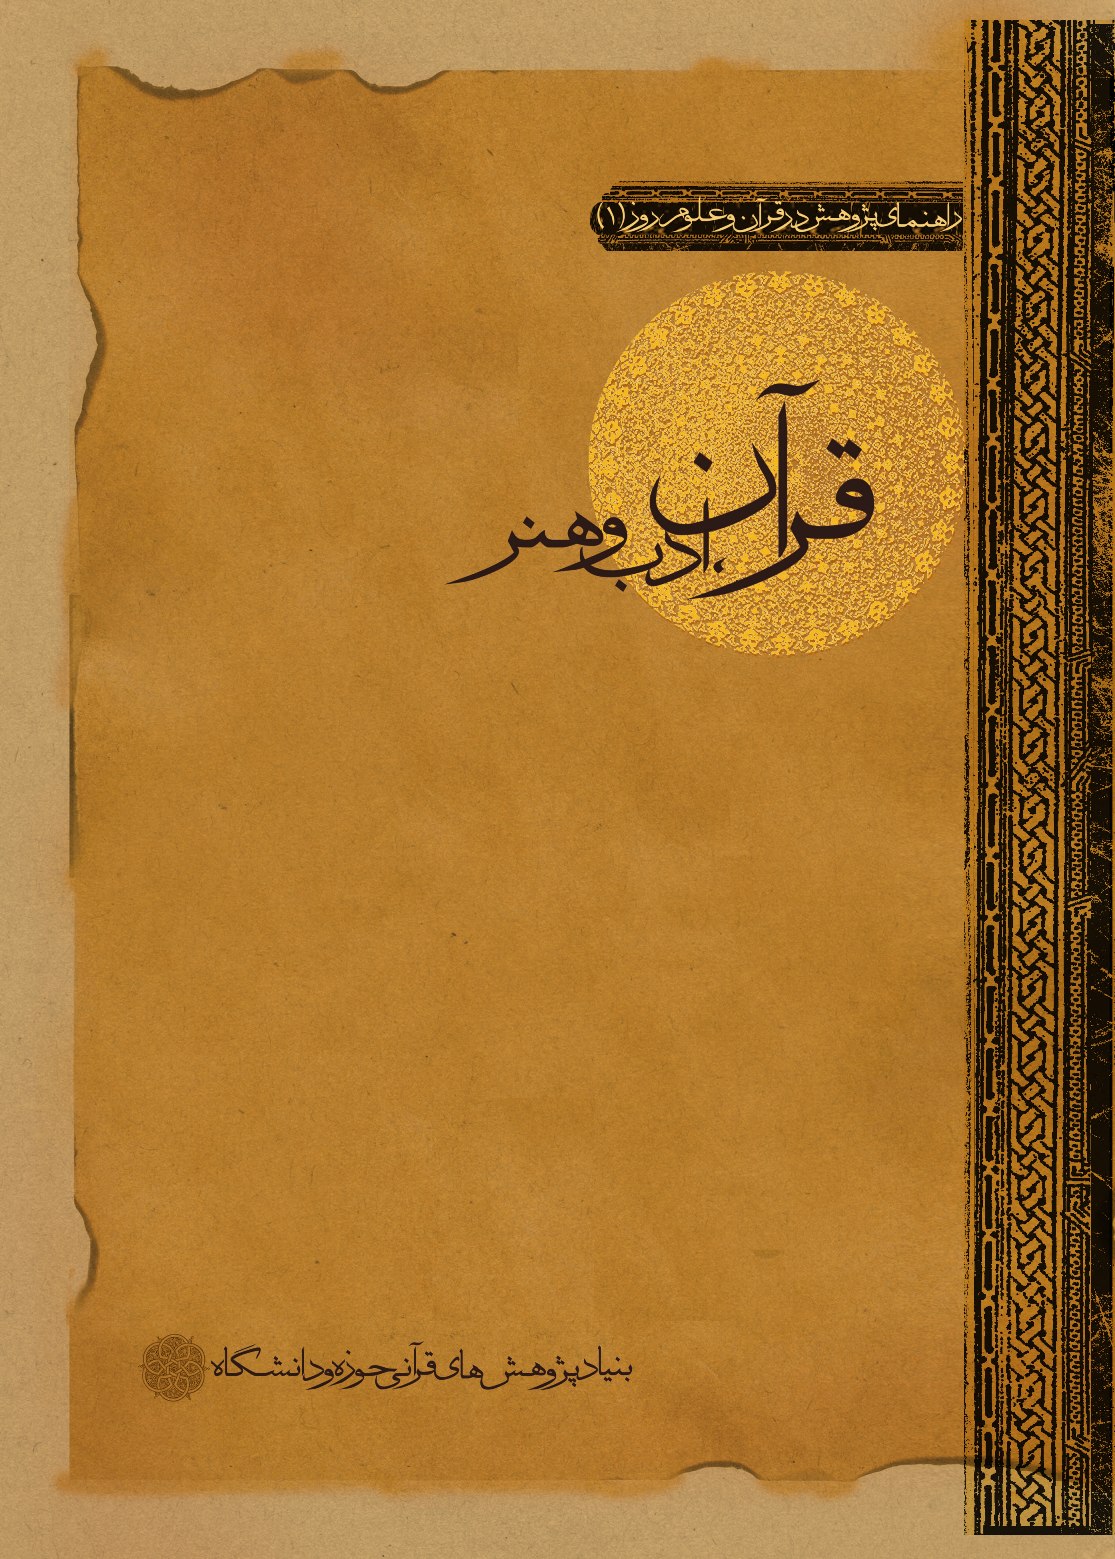 راهنمای پژوهش در قرآن و علوم روز (۱)
قرآن،
ادب و هنر
بنیاد پژوهش های قرآنی حوزه و دانشگاه